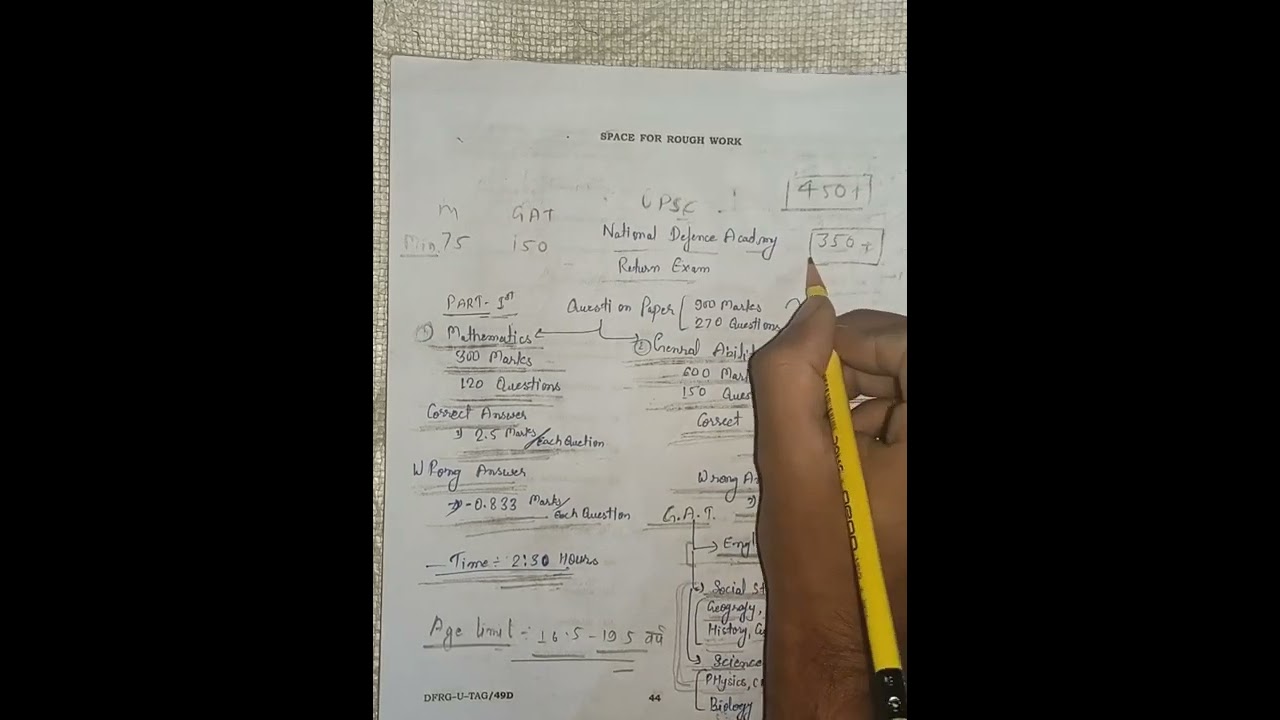 SPACE FOR ROUGH WORK
450+
M GAT UPSC
Min. 75 150 National Defence Acadmy 350+
Return Exam
PART- Ist
Question Paper 900 Marks
270 Questions
① Mathematics
300 Marks
120 Questions
Correct Answer
⇒ 2.5 Marks/each Quetion
WRong Answer
⇒ -0.833 Marks/each Question
Time ÷ 2:30 HOURS
Age limit ÷ 16.5 - 19.5 वर्ष
② General Abilit
600 Mar
150 Ques
Correct
Wrong An
G.A.T.
→ Engl
Social St
Geografy,
History,
Science
PHysics, c
Biology
DFRG-U-TAG/49D 44